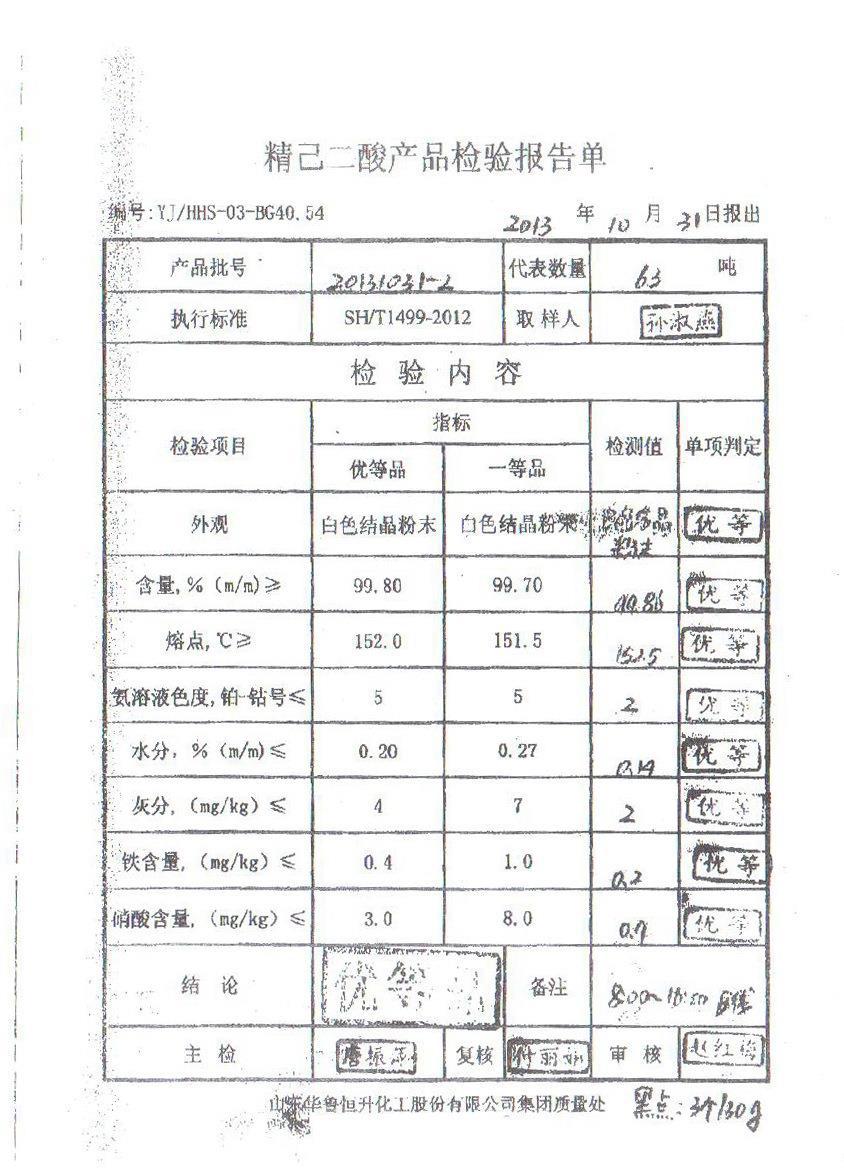 精己二酸产品检验报告单
编号:YJ/HHS-03-BG40.54 2013 年 10 月 31 日报出
产品批号 20131031-2 代表数量 63 吨
执行标准 SH/T1499-2012 取样人 孙淑燕
检 验 内 容
检验项目 指标 检测值 单项判定
优等品 一等品
外观 白色结晶粉末 白色结晶粉末 白色结晶粉末 优等
含量,%（m/m）≥ 99.80 99.70 99.86 优等
熔点,℃≥ 152.0 151.5 152.5 优等
氨溶液色度,铂-钴号≤ 5 5 2 优等
水分，%（m/m）≤ 0.20 0.27 0.14 优等
灰分,（mg/kg）≤ 4 7 2 优等
铁含量,（mg/kg）≤ 0.4 1.0 0.2 优等
硝酸含量,（mg/kg）≤ 3.0 8.0 优等
结 论 优等品 备注 8:00~
主 检 复核 审 核 赵红
山东华鲁恒升化工股份有限公司集团质量处 黑点:3个/30g